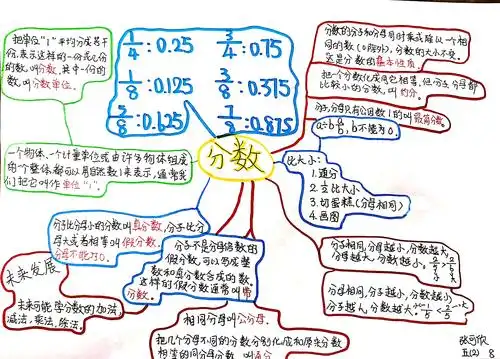 把单位“1”平均分成若干
份,表示这样的一份或几份
的数,叫分数,其中一份的
数,叫分数单位。
1/4:0.25 3/4:0.75
1/8:0.125 3/8:0.375
5/8:0.625 7/8:0.875
分数的分子和分母同时乘或除以一个相
同的数(0除外),分数的大小不变。
这是分数的基本性质。
把一个分数化成同它相等,但分子分母都
比较小的分数,叫约分。
分子,分母只有公因数1的叫最简分数。
a÷b=a/b,b不能为0。
分数
一个物体、一个计量单位或由许多物体组成
的个整体都可以用自然数1来表示,通常我
们把它叫作单位“1”。
比大小:
1.通分
2.交叉比大小
3.切蛋糕(分母相同)
4.画图
分子比分母小的分数叫真分数,分子比分
母大或者相等叫假分数。
分母不能为0。
分子不是分母倍数的
假分数,可以写成整
数和真分数合成的数,
这样的假分数通常叫带
分数。
分子相同,分母越小,分数越大,
分母越大,分数越小。
分母相同,分子越小,分数越小
分子越大,分数越大。
未来发展
未来可能学分数的加法,
减法,乘法,除法。
相同分母叫公分母。
把几个分母不同的分数分别化成和原来分数
相等的同分母分数,叫通分
五(2) 8